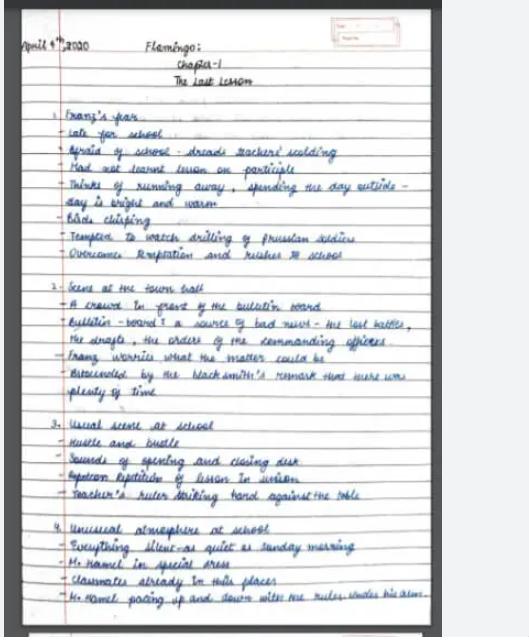 April 4th, 2020
Flamingo:
Chapter-1
The Last Lesson
1. Franz's fear
- Late for school
- Afraid of school - dreads teachers' scolding
- Had not learnt lesson on participle
- Thinks of running away, spending the day outside -
day is bright and warm
- Birds chirping
- Tempted to watch drilling of prussian soldiers
- Overcomes temptation and rushes to school
2. Scene at the town hall
- A crowd in front of the bulletin board
- Bulletin-board: a source of bad news - the lost battles,
the drafts, the orders of the commanding officers
- Franz worries what the matter could be
- Astounded by the blacksmith's remark that there was
plenty of time
3. Usual scene at school
- Hustle and bustle
- Sounds of opening and closing desk
- Repetition of lesson in unison
- Teacher's ruler striking hard against the table
4. Unusual atmosphere at school
- Everything silent-as quiet as Sunday morning
- M. Hamel in special dress
- Classmates already in their places
- M. Hamel pacing up and down with the ruler under his arm.